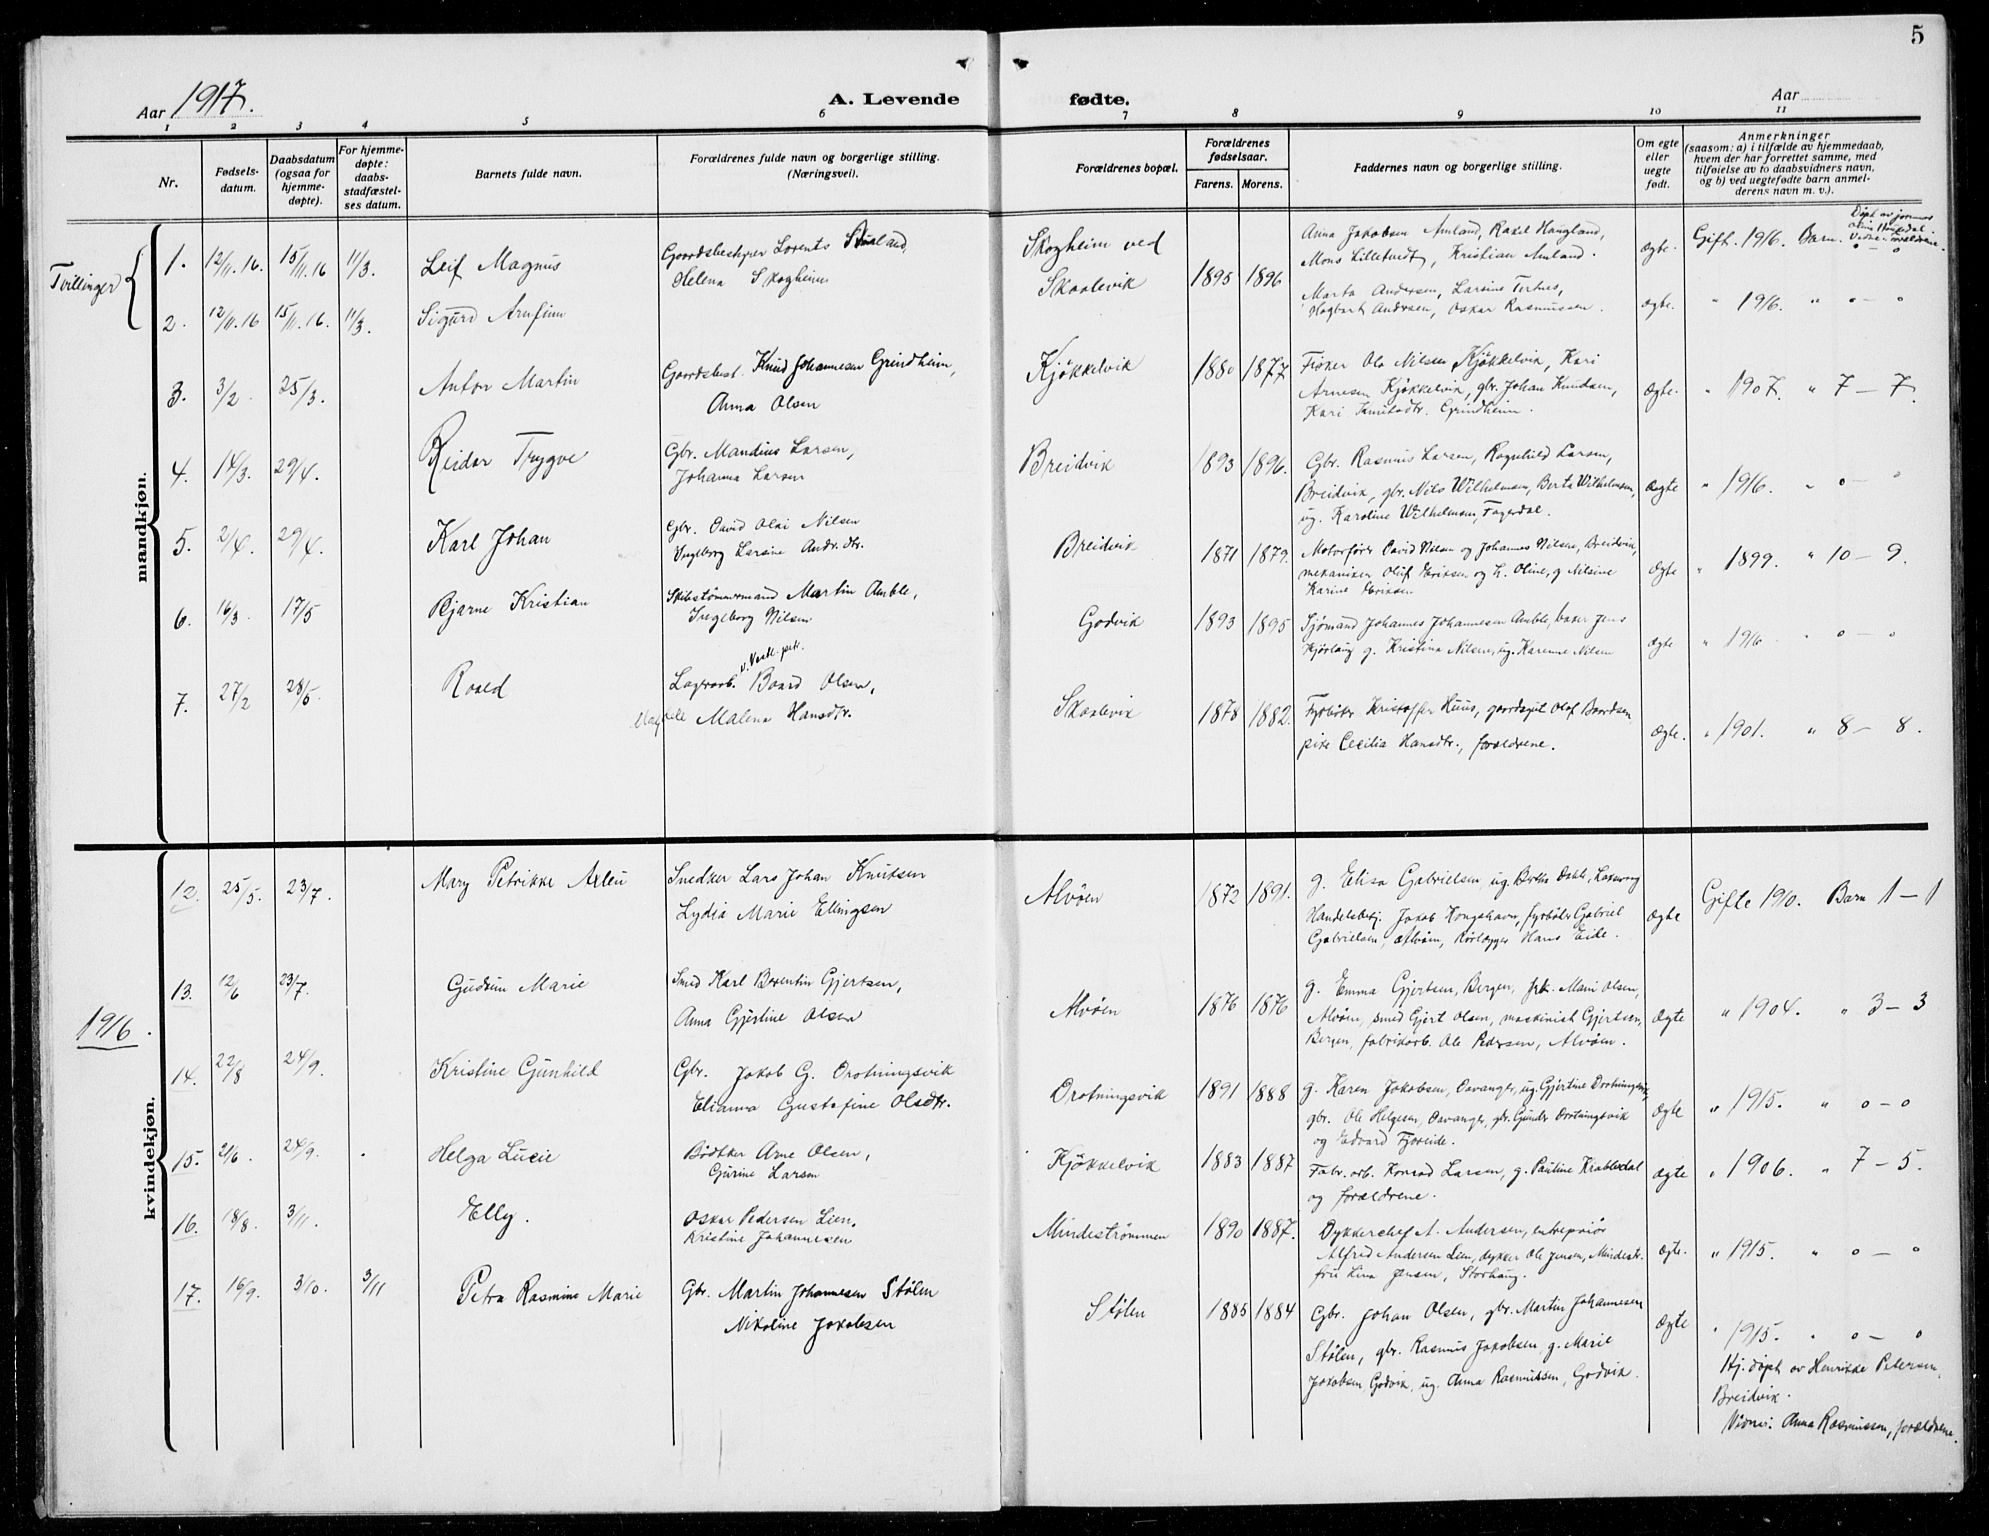 5
Aar 1917.
A. Levende fødte.
Aar
1 2 3 4 5 6 7 8 9 10 11
Nr.
Fødsels-
datum.
Daabsdatum
(ogsaa for
hjemme-
døpte).
For hjemme-
døpte:
daabs-
stadfæstel-
ses datum.
Barnets fulde navn.
Forældrenes fulde navn og borgerlige stilling.
(Næringsvei).
Forældrenes bopæl.
Forældrenes
fødselsaar.
Farens. Morens.
Faddernes navn og borgerlige stilling.
Om egte
eller
uegte
født.
Anmerkninger
(saasom: a) i tilfælde av hjemmedaab,
hvem der har forrettet samme, med
tilføielse av to daabsvidners navn,
og b) ved uegtefødte barn anmel-
derens navn m. v.).
Tvillinger
mandkjøn.
1. 12/11.16. 15/11.16 11/3. Leif Magnus
Gaardsbestyrer Lorents
Helena Skogheim
Skogheim ved
Skaalevik
1895 1896
Anna Jakobsen Amland, Rakel Haugland,
Mons Lilletvedt, Kristian Amland.
ægte.
Gift. 1916. Barn. o — o
2. 12/11.16 15/11.16. 11/3. Sigurd Arnfinn
Marta Andersen, Larsine Tertnes,
Hagbart Andersen, Oskar Rasmussen.
ægte.
" 1916. " o — o
3. 3/2. 25/3. Anton Martin
Gaardsbest. Knud Johannesen Grindheim,
Anna Olsen
Kjøkkelvik
1880 1877
Fisker Ole Nilsen Kjøkkelvik, Kari
Arnesen Kjøkkelvik, gbr. Johan Knudsen,
Kari Knutsdtr. Grindheim.
ægte.
" 1907. " 7 — 7.
4. 14/3. 29/4. Reidar Trygve
Gbr. Mandius Larsen,
Johanna Larsen
Breidvik
1893 1896.
Gbr. Rasmus Larsen, Ragnhild Larsen,
Breidvik, gbr. Nils Wilhelmsen, Berta Wilhelmsen,
ug. Karoline Wilhelmsen, Fagerdal.
ægte
" 1916. " o — o
5. 2/4. 29/4. Karl Johan
Gbr. David Olai Nilsen
Ingeborg Larsine Andr.dtr.
Breidvik
1871 1879.
Motorfører David Nilsen og Johannes Nilsen, Breidvik,
mekaniker Oluf Eriksen og h. Oline, g Nilsine
Karine Eriksen
ægte
" 1899. " 10 — 9.
6. 16/3. 17/5 Bjarne Kristian
Skibstømmermand Martin Amble,
Ingeborg Nilsen
Godvik
1893 1895
Sjømand Johannes Johannesen Amble, baker Jens
Hjørlaug g. Kristina Nilsen, ug. Karenne Nilsen
ægte
" 1916 " o — o
7. 27/2 28/5. Roald
v. Vestl. petr.
Lagerarb. Baard Olsen,
Magdele Malena Hansdtr.
Skaalevik
1878 1882.
Fyrbøter Kristoffer Huus, gaardsgut Olaf Baardsen
pike Cecilia Hansdtr., forældrene.
ægte.
" 1901. " 8 — 8.
1916.
kvindekjøn.
12. 25/5. 23/7. Mary Petrikke
Snedker Lars Johan Knutsen
Lydia Marie Ellingsen
Alvøen
1872 1891.
g. Elisa Gabrielsen, ug. Berthe Dahle, Laksevaag
Handelsbetj. Jakob Kongshavn, fyrbøter Gabriel
Gabrielsen, Alvøen, Rørlægger Hans Eide.
ægte
Gifte 1910. Barn 1 — 1
13. 12/6 23/7. Gudrun Marie
Smed Karl Berentin Gjertsen,
Anna Gjertine Olsen
Alvøen
1876 1876
g. Emma Gjertsen, Bergen, frk. Marie Olsen,
Alvøen, smed Gjert Olsen, maskinist Gjertsen,
Bergen, fabrikarb. Ole Pedersen, Alvøen.
ægte
" 1904. " 3 — 3
14. 22/8 24/9. Kristine Gunhild
Gbr. Jakob G. Drotningsvik
Elianna Gustafine Olsdtr.
Drotningsvik
1891 1888
g. Karen Jakobsen, Davanger, ug. Gjertine Drotningsvik,
gbr. Ole Helgesen, Davanger, gbr. Gunder Drotningsvik
og Edvard Fjoreide.
ægte
" 1915. " o — o
15. 21/6 24/9. Helga Lucie
Bødker Arne Olsen,
Gurine Larsen
Kjøkkelvik
1883 1887
Fabr. arb. Konrad Larsen, g. Pauline Krabbedal
og forældrene.
ægte
" 1906. " 7 — 5.
16. 18/8. 3/11. Elly.
Oskar Pedersen Lien.
Kristine Johannesen
Mindestrømmen
1890 1887.
Dykkerchef A. Andersen, entreprenør
Alfred Andersen Lien, dykker Ole Jensen, Mindestr.
fru Lina Jensen, Storhaug.
ægte.
" 1915. " o — o
17. 16/9. 3/10. 3/11 Petra Rasmine Marie
Gbr. Martin Johannesen Stølen
Nikoline Jakobsen
Stølen
1885 1884
Gbr. Johan Olsen, gbr. Martin Johannesen
Stølen, gbr. Rasmus Jakobsen, g. Marie
Jakobsen Godvik, ug. Anna Rasmussen, Godvik.
ægte
" 1915. " o — o
Hj. døpt av Henrikke Petersen
Breidvik.
Vidner: Anna Rasmussen, forældrene.